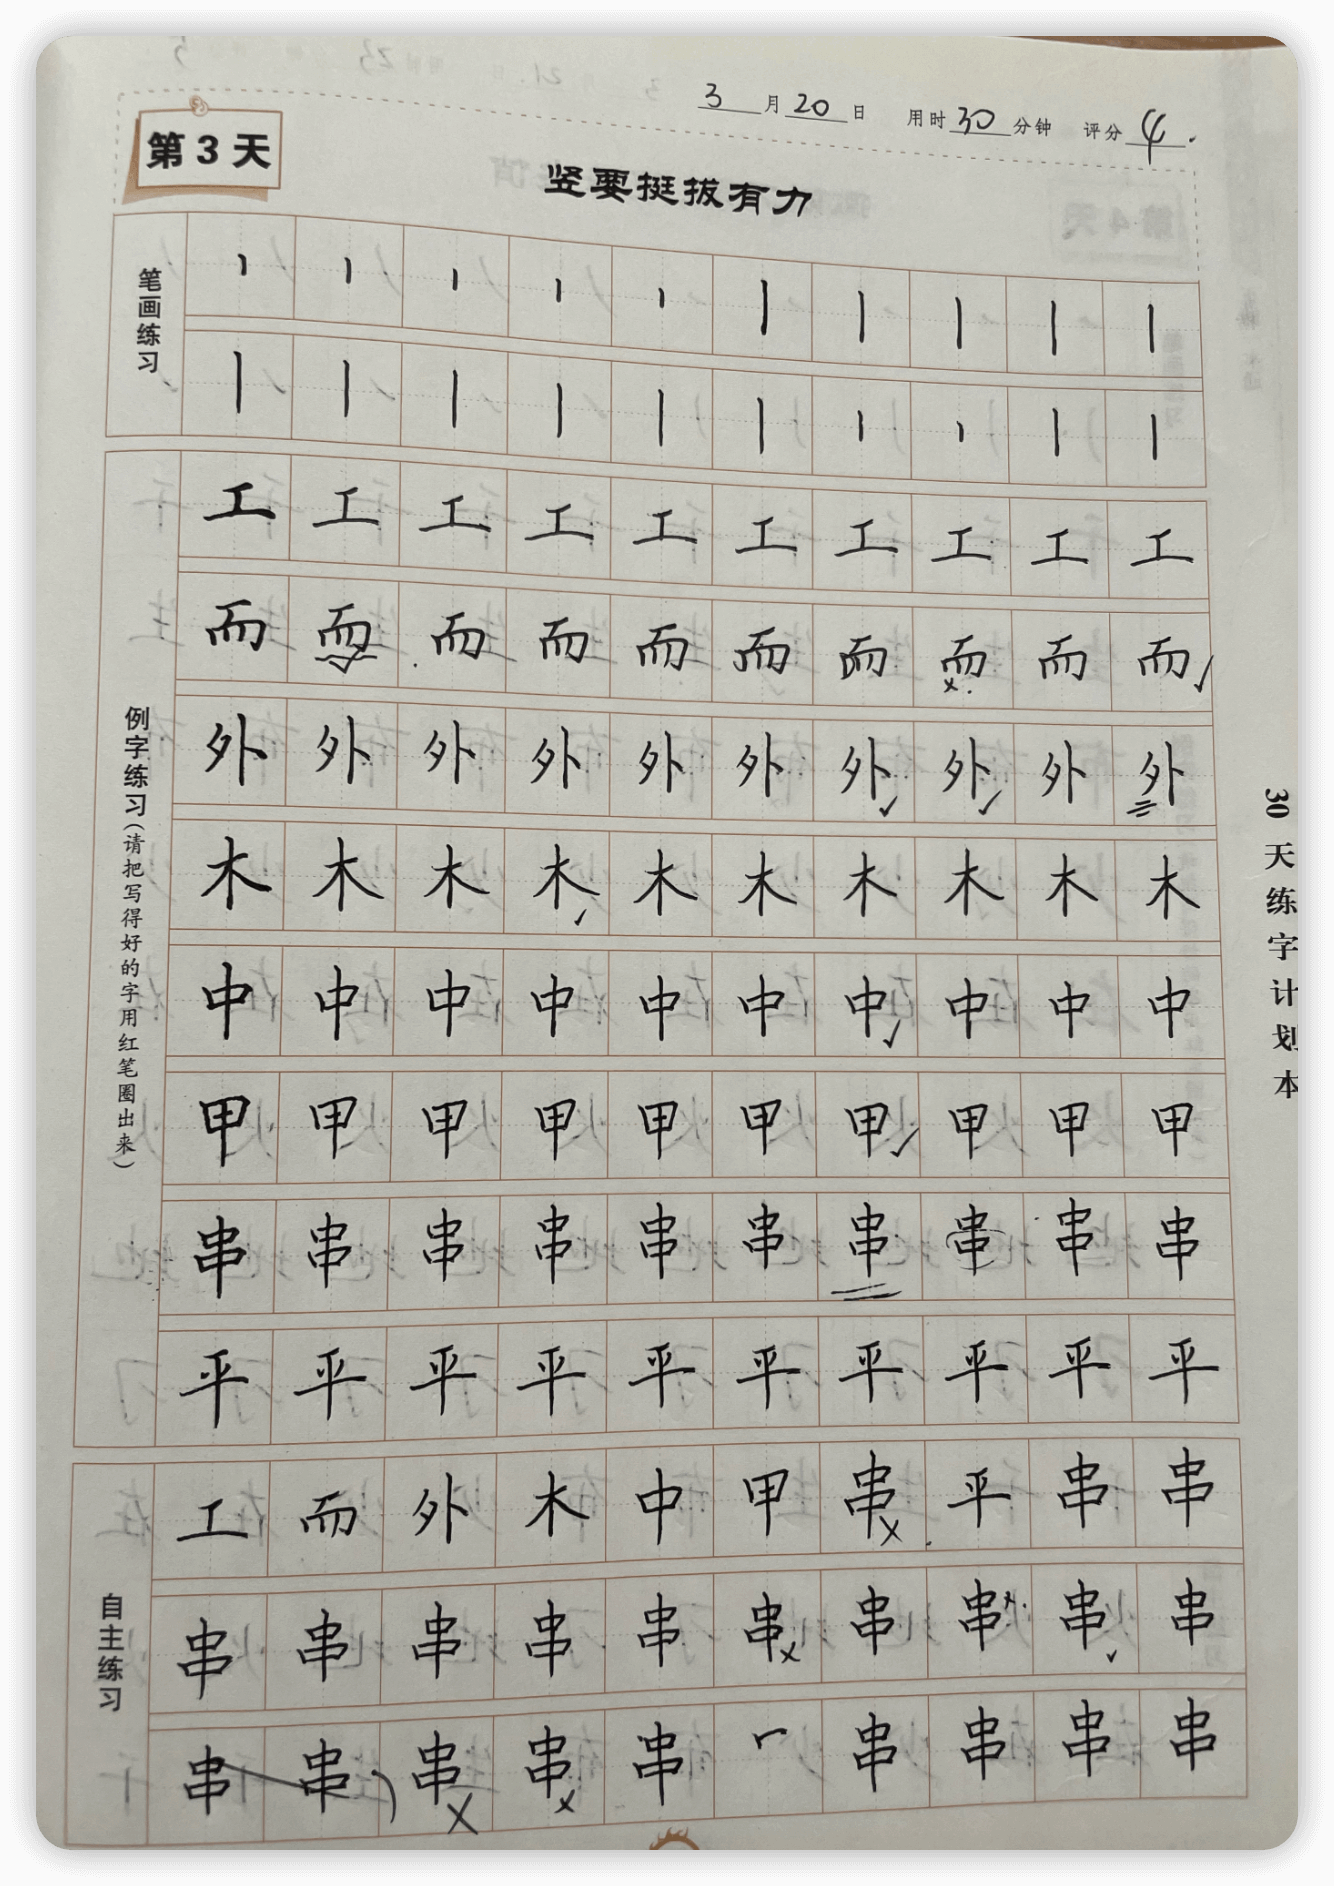 3月20日 用时30分钟 评分4.
第3天
竖要挺拔有力
笔画练习
例字练习(请把写得好的字用红笔圈出来)
工工工工工工工工工工
而而而而而而而而而而
外外外外外外外外外外
木木木木木木木木木木
中中中中中中中中中中
甲甲甲甲甲甲甲甲甲甲
串串串串串串串串串串
平平平平平平平平平平
自主练习
工而外木中甲串平串串
串串串串串串串串串串
串串串串串串串串串
30天练字计划本